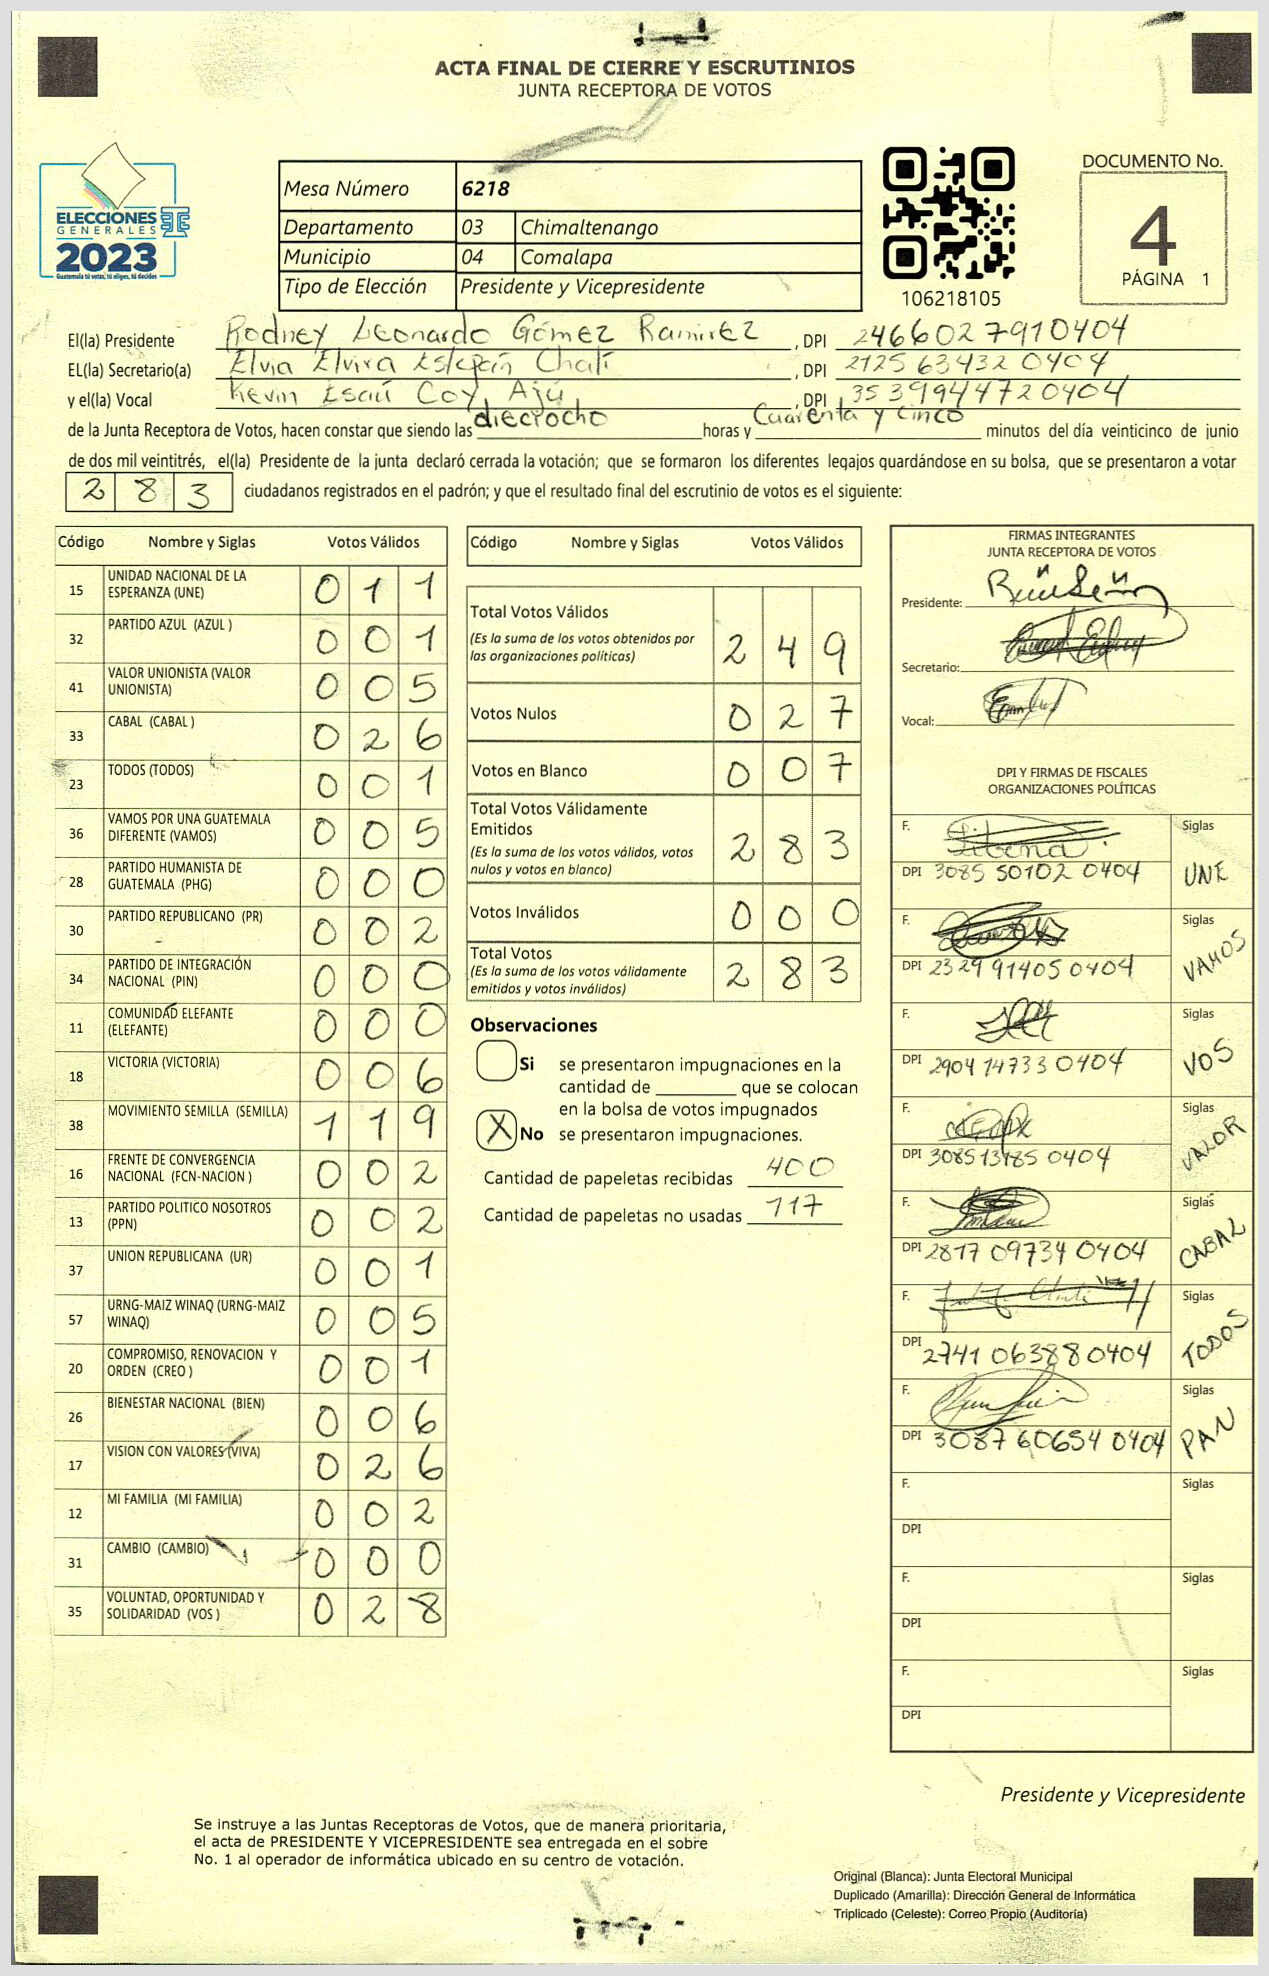 ACTA FINAL DE CIERRE Y ESCRUTINIOS
JUNTA RECEPTORA DE VOTOS
ELECCIONES
GENERALES
2023
Guatemala tú votas, tú eliges, tú decides
Mesa Número 6218
Departamento 03 Chimaltenango
Municipio 04 Comalapa
Tipo de Elección Presidente y Vicepresidente
106218105
DOCUMENTO No.
4
PÁGINA 1
El(la) Presidente Rodney Leonardo Gómez Ramirez, DPI 2466027910404
EL(la) Secretario(a) Elvia Elvira Estepán Chalí, DPI 2125634320404
y el(la) Vocal Kevin Esaú Coy Ajú, DPI 3539944720404
de la Junta Receptora de Votos, hacen constar que siendo las dieciocho horas y Cuarenta y cinco minutos del día veinticinco de junio
de dos mil veintitrés, el(la) Presidente de la junta declaró cerrada la votación; que se formaron los diferentes legajos guardándose en su bolsa, que se presentaron a votar
283 ciudadanos registrados en el padrón; y que el resultado final del escrutinio de votos es el siguiente:
Código Nombre y Siglas Votos Válidos
15 UNIDAD NACIONAL DE LA ESPERANZA (UNE) 0 1 1
32 PARTIDO AZUL (AZUL ) 0 0 1
41 VALOR UNIONISTA (VALOR UNIONISTA) 0 0 5
33 CABAL (CABAL ) 0 2 6
23 TODOS (TODOS) 0 0 1
36 VAMOS POR UNA GUATEMALA DIFERENTE (VAMOS) 0 0 5
28 PARTIDO HUMANISTA DE GUATEMALA (PHG) 0 0 0
30 PARTIDO REPUBLICANO (PR) 0 0 2
34 PARTIDO DE INTEGRACIÓN NACIONAL (PIN) 0 0 0
11 COMUNIDAD ELEFANTE (ELEFANTE) 0 0 0
18 VICTORIA (VICTORIA) 0 0 6
38 MOVIMIENTO SEMILLA (SEMILLA) 1 1 9
16 FRENTE DE CONVERGENCIA NACIONAL (FCN-NACION ) 0 0 2
13 PARTIDO POLITICO NOSOTROS (PPN) 0 0 2
37 UNION REPUBLICANA (UR) 0 0 1
57 URNG-MAIZ WINAQ (URNG-MAIZ WINAQ) 0 0 5
20 COMPROMISO, RENOVACION Y ORDEN (CREO ) 0 0 1
26 BIENESTAR NACIONAL (BIEN) 0 0 6
17 VISION CON VALORES (VIVA) 0 2 6
12 MI FAMILIA (MI FAMILIA) 0 0 2
31 CAMBIO (CAMBIO) 0 0 0
35 VOLUNTAD, OPORTUNIDAD Y SOLIDARIDAD (VOS ) 0 2 8
Código Nombre y Siglas Votos Válidos
Total Votos Válidos 2 4 9
(Es la suma de los votos obtenidos por
las organizaciones políticas)
Votos Nulos 0 2 7
Votos en Blanco 0 0 7
Total Votos Válidamente
Emitidos 2 8 3
(Es la suma de los votos válidos, votos
nulos y votos en blanco)
Votos Inválidos 0 0 0
Total Votos 2 8 3
(Es la suma de los votos válidamente
emitidos y votos inválidos)
Observaciones
Si se presentaron impugnaciones en la
cantidad de ________ que se colocan
en la bolsa de votos impugnados
X No se presentaron impugnaciones.
Cantidad de papeletas recibidas 400
Cantidad de papeletas no usadas 117
FIRMAS INTEGRANTES
JUNTA RECEPTORA DE VOTOS
Presidente:
Secretario:
Vocal:
DPI Y FIRMAS DE FISCALES
ORGANIZACIONES POLÍTICAS
F. Siglas
DPI 3085 50102 0404 UNE
F. Siglas
DPI 2329 91405 0404 VAMOS
F. Siglas
DPI 2904 14733 0404 VOS
F. Siglas
DPI 3085 13185 0404 VALOR
F. Siglas
DPI 2817 09734 0404 CABAL
F. Siglas
DPI 2741 06388 0404 TODOS
F. Siglas
DPI 3087 60654 0404 PAN
F. Siglas
DPI
F. Siglas
DPI
F. Siglas
DPI
Presidente y Vicepresidente
Se instruye a las Juntas Receptoras de Votos, que de manera prioritaria,
el acta de PRESIDENTE Y VICEPRESIDENTE sea entregada en el sobre
No. 1 al operador de informática ubicado en su centro de votación.
Original (Blanca): Junta Electoral Municipal
Duplicado (Amarilla): Dirección General de Informática
Triplicado (Celeste): Correo Propio (Auditoría)